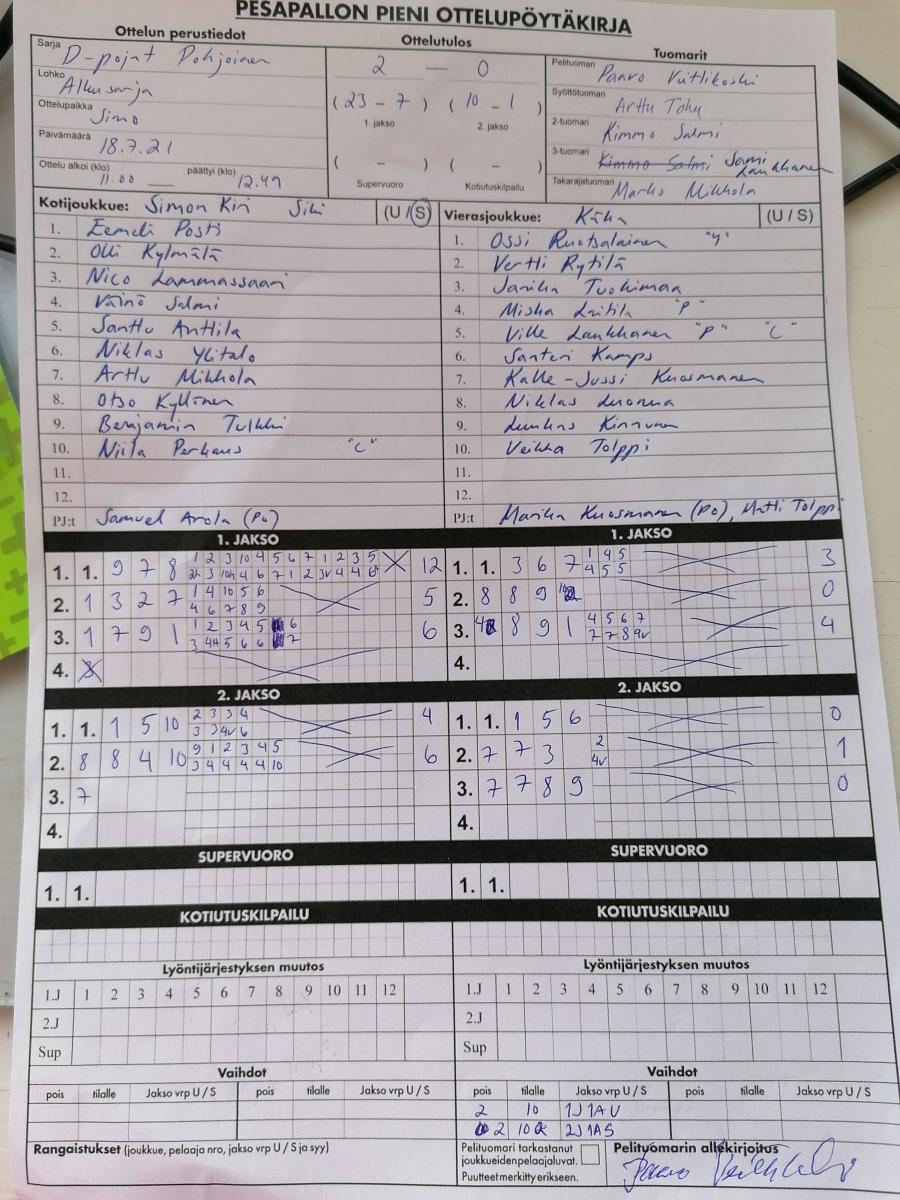 PESÄPALLON PIENI OTTELUPÖYTÄKIRJA
Ottelun perustiedot
Sarja D-pojat Pohjoinen
Lohko Alkusarja
Ottelupaikka Simo
Päivämäärä 18.7.21
Ottelu alkoi (klo) 11.00 päättyi (klo) 12.49
Ottelutulos
2 — 0
( 23 - 7 ) ( 10 - 1 )
1. jakso 2. jakso
( - ) ( - )
Supervuoro Kotiutuskilpailu
Tuomarit
Pelituoman Paavo
Syöttötuomari Arttu
2-tuomari Kimmo Salmi
3-tuomari Kimmo Salmi Sami Laukkanen
Takarajatuomari Marko Mikkola
Kotijoukkue: Simon Kiri (U / S)
1. Eemeli Posti
2. Olli Kylmälä
3. Nico Lammassaari
4. Väinö Salmi
5. Santtu Anttila
6. Niklas Ylitalo
7. Arttu Mikkola
8. Otso Kyllönen
9. Benjamin Tulkki
10. Niila Perkaus "C"
11.
12.
PJ:t Samuel Arola (PO)
Vierasjoukkue: (U / S)
1. Ossi Ruotsalainen "y"
2. Vertti Rytilä
3. Janika Tuohimaa
4. Miska "P"
5. Ville Laukkanen "P" "C"
6. Santeri
7. Kalle-Jussi Kuosmanen
8. Niklas
9. Kinnunen
10. Veikka Tolppi
11.
12.
PJ:t Marika Kuosmanen (PO), Matti Tolppi
1. JAKSO
1. 1. 9 7 8 1 2 3 10 4 5 6 7 1 2 3 5 12
2. 1 3 2 7 1 4 10 5 6 5
4 6 7 8 9
3. 1 7 9 1 1 2 3 4 5 6 6
3 4H 5 6 6 7
4.
1. JAKSO
1. 1. 3 6 7 1 4 5 3
4 5 5
2. 8 8 9 0
3. 8 9 1 4 5 6 7 4
7 7 8 9v
4.
2. JAKSO
1. 1. 1 5 10 2 3 3 4 4
3 3 4v 6
2. 8 8 4 10 9 1 2 3 4 5 6
3 4 4 4 4 10
3. 7
4.
2. JAKSO
1. 1. 1 5 6 0
2. 7 7 3 2 1
4v
3. 7 7 8 9 0
4.
SUPERVUORO
1. 1.
SUPERVUORO
1. 1.
KOTIUTUSKILPAILU
KOTIUTUSKILPAILU
Lyöntijärjestyksen muutos
1.J 1 2 3 4 5 6 7 8 9 10 11 12
2.J
Sup
Lyöntijärjestyksen muutos
1.J 1 2 3 4 5 6 7 8 9 10 11 12
2.J
Sup
Vaihdot
pois tilalle Jakso vrp U / S pois tilalle Jakso vrp U / S
Vaihdot
pois tilalle Jakso vrp U / S pois tilalle Jakso vrp U / S
2 10 1J 1A U
2 10 2J 1A S
Rangaistukset (joukkue, pelaaja nro, jakso vrp U / S ja syy)
Pelituomari tarkastanut
joukkueiden pelaajaluvat.
Puutteet merkitty erikseen.
Pelituomarin allekirjoitus